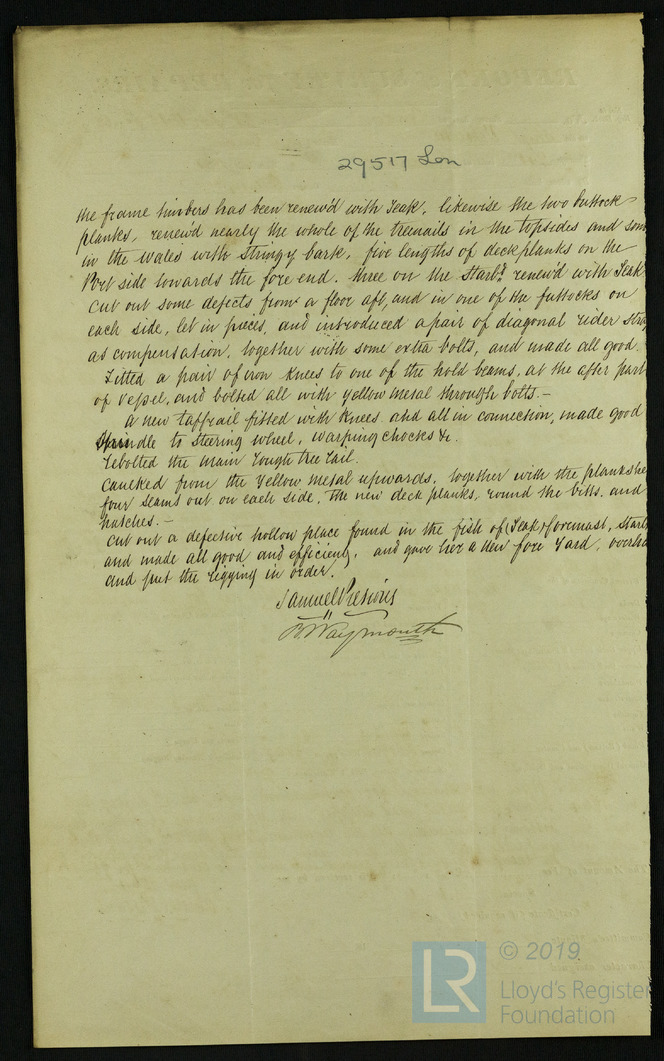 29517 Lon
the frame timbers has been renew'd with Teak, likewise the two buttock
planks, renew'd nearly the whole of the treenails in the topsides and some
in the wales with Stringy bark, five lengths of deck planks on the
Port side towards the fore end. three on the Starbd renew'd with Teak
cut out some defects from a floor aft, and in one of the futtocks on
each side, let in pieces, and introduced a pair of diagonal rider
as compensation, together with some extra bolts, and made all good.
Fitted a pair of iron knees to one of the hold beams, at the after part
of vessel, and bolted all with yellow metal through bolts.-
A new taffrail fitted with knees and all in connection, made good
Spindle to Steering wheel, warping chocks &c.
rebolted the main rough tree rail.
caulked from the Yellow metal upwards, together with the
four Seams out on each side, the new deck planks, round the bitts, and
hatches.-
cut out a defective hollow place found in the fish of (Teak) foremast,
and made all good and efficient, and gave her a new fore Yard,
and put the rigging in order.
Samuel
B Waymouth
© 2019
LR
Lloyd's Register
Foundation